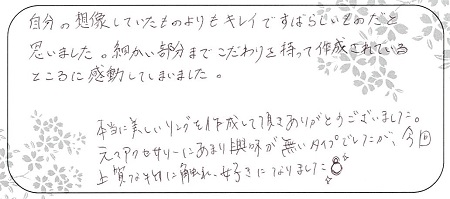 自分の想像していたものよりもキレイですばらしいものだと
思いました。細かい部分までこだわりを持って作成されている
ところに感動してしまいました。
本当に美しいリングを作成して頂きありがとうございました。
元々アクセサリーにあまり興味が無いタイプでしたが、今回
上質な物に触れ、好きになりました